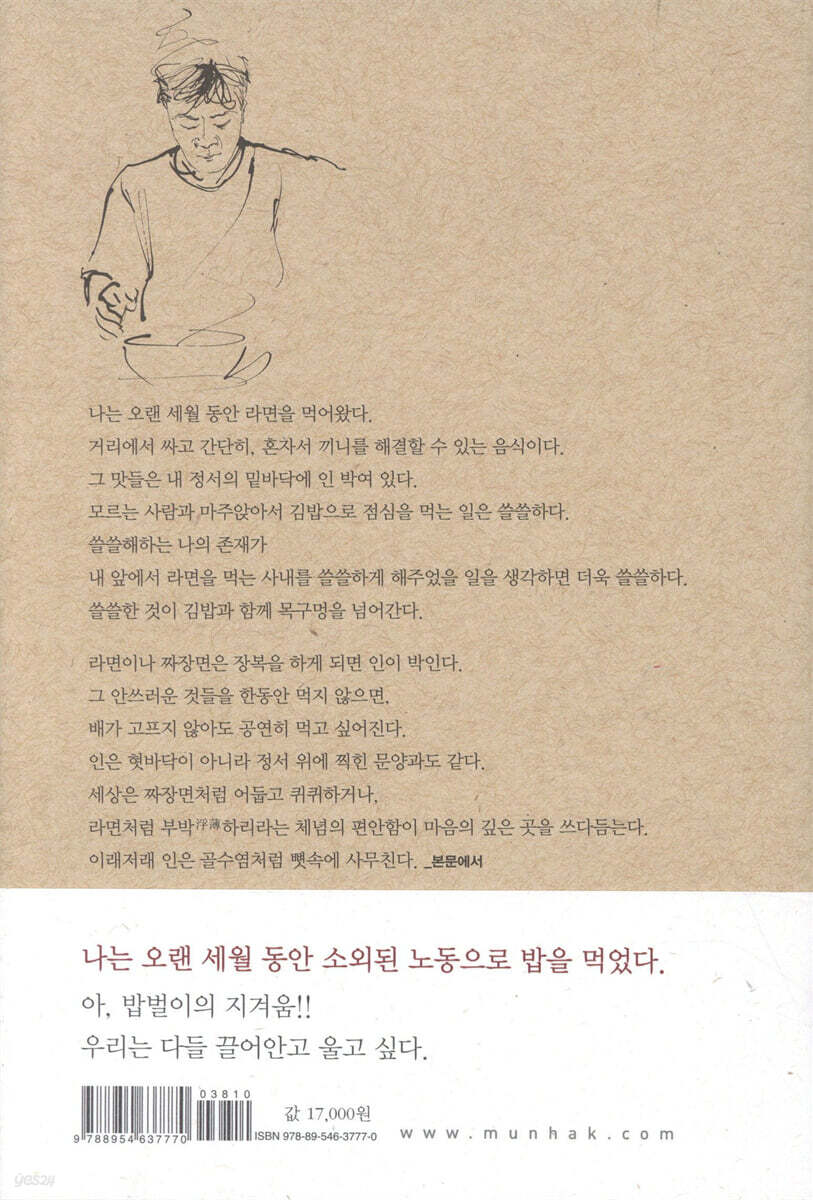 나는 오랜 세월 동안 라면을 먹어왔다.
거리에서 싸고 간단히, 혼자서 끼니를 해결할 수 있는 음식이다.
그 맛들은 내 정서의 밑바닥에 인 박여 있다.
모르는 사람과 마주앉아서 김밥으로 점심을 먹는 일은 쓸쓸하다.
쓸쓸해하는 나의 존재가
내 앞에서 라면을 먹는 사내를 쓸쓸하게 해주었을 일을 생각하면 더욱 쓸쓸하다.
쓸쓸한 것이 김밥과 함께 목구멍을 넘어간다.
라면이나 짜장면은 장복을 하게 되면 인이 박인다.
그 안쓰러운 것들을 한동안 먹지 않으면,
배가 고프지 않아도 공연히 먹고 싶어진다.
인은 혓바닥이 아니라 정서 위에 찍힌 문양과도 같다.
세상은 짜장면처럼 어둡고 퀴퀴하거나,
라면처럼 부박浮薄하리라는 체념의 편안함이 마음의 깊은 곳을 쓰다듬는다.
이래저래 인은 골수염처럼 뼛속에 사무친다. _본문에서
나는 오랜 세월 동안 소외된 노동으로 밥을 먹었다.
아, 밥벌이의 지겨움!!
우리는 다들 끌어안고 울고 싶다.
03810
9 788954 637770
ISBN 978-89-546-3777-0
값 17,000원
www.munhak.com
yes24